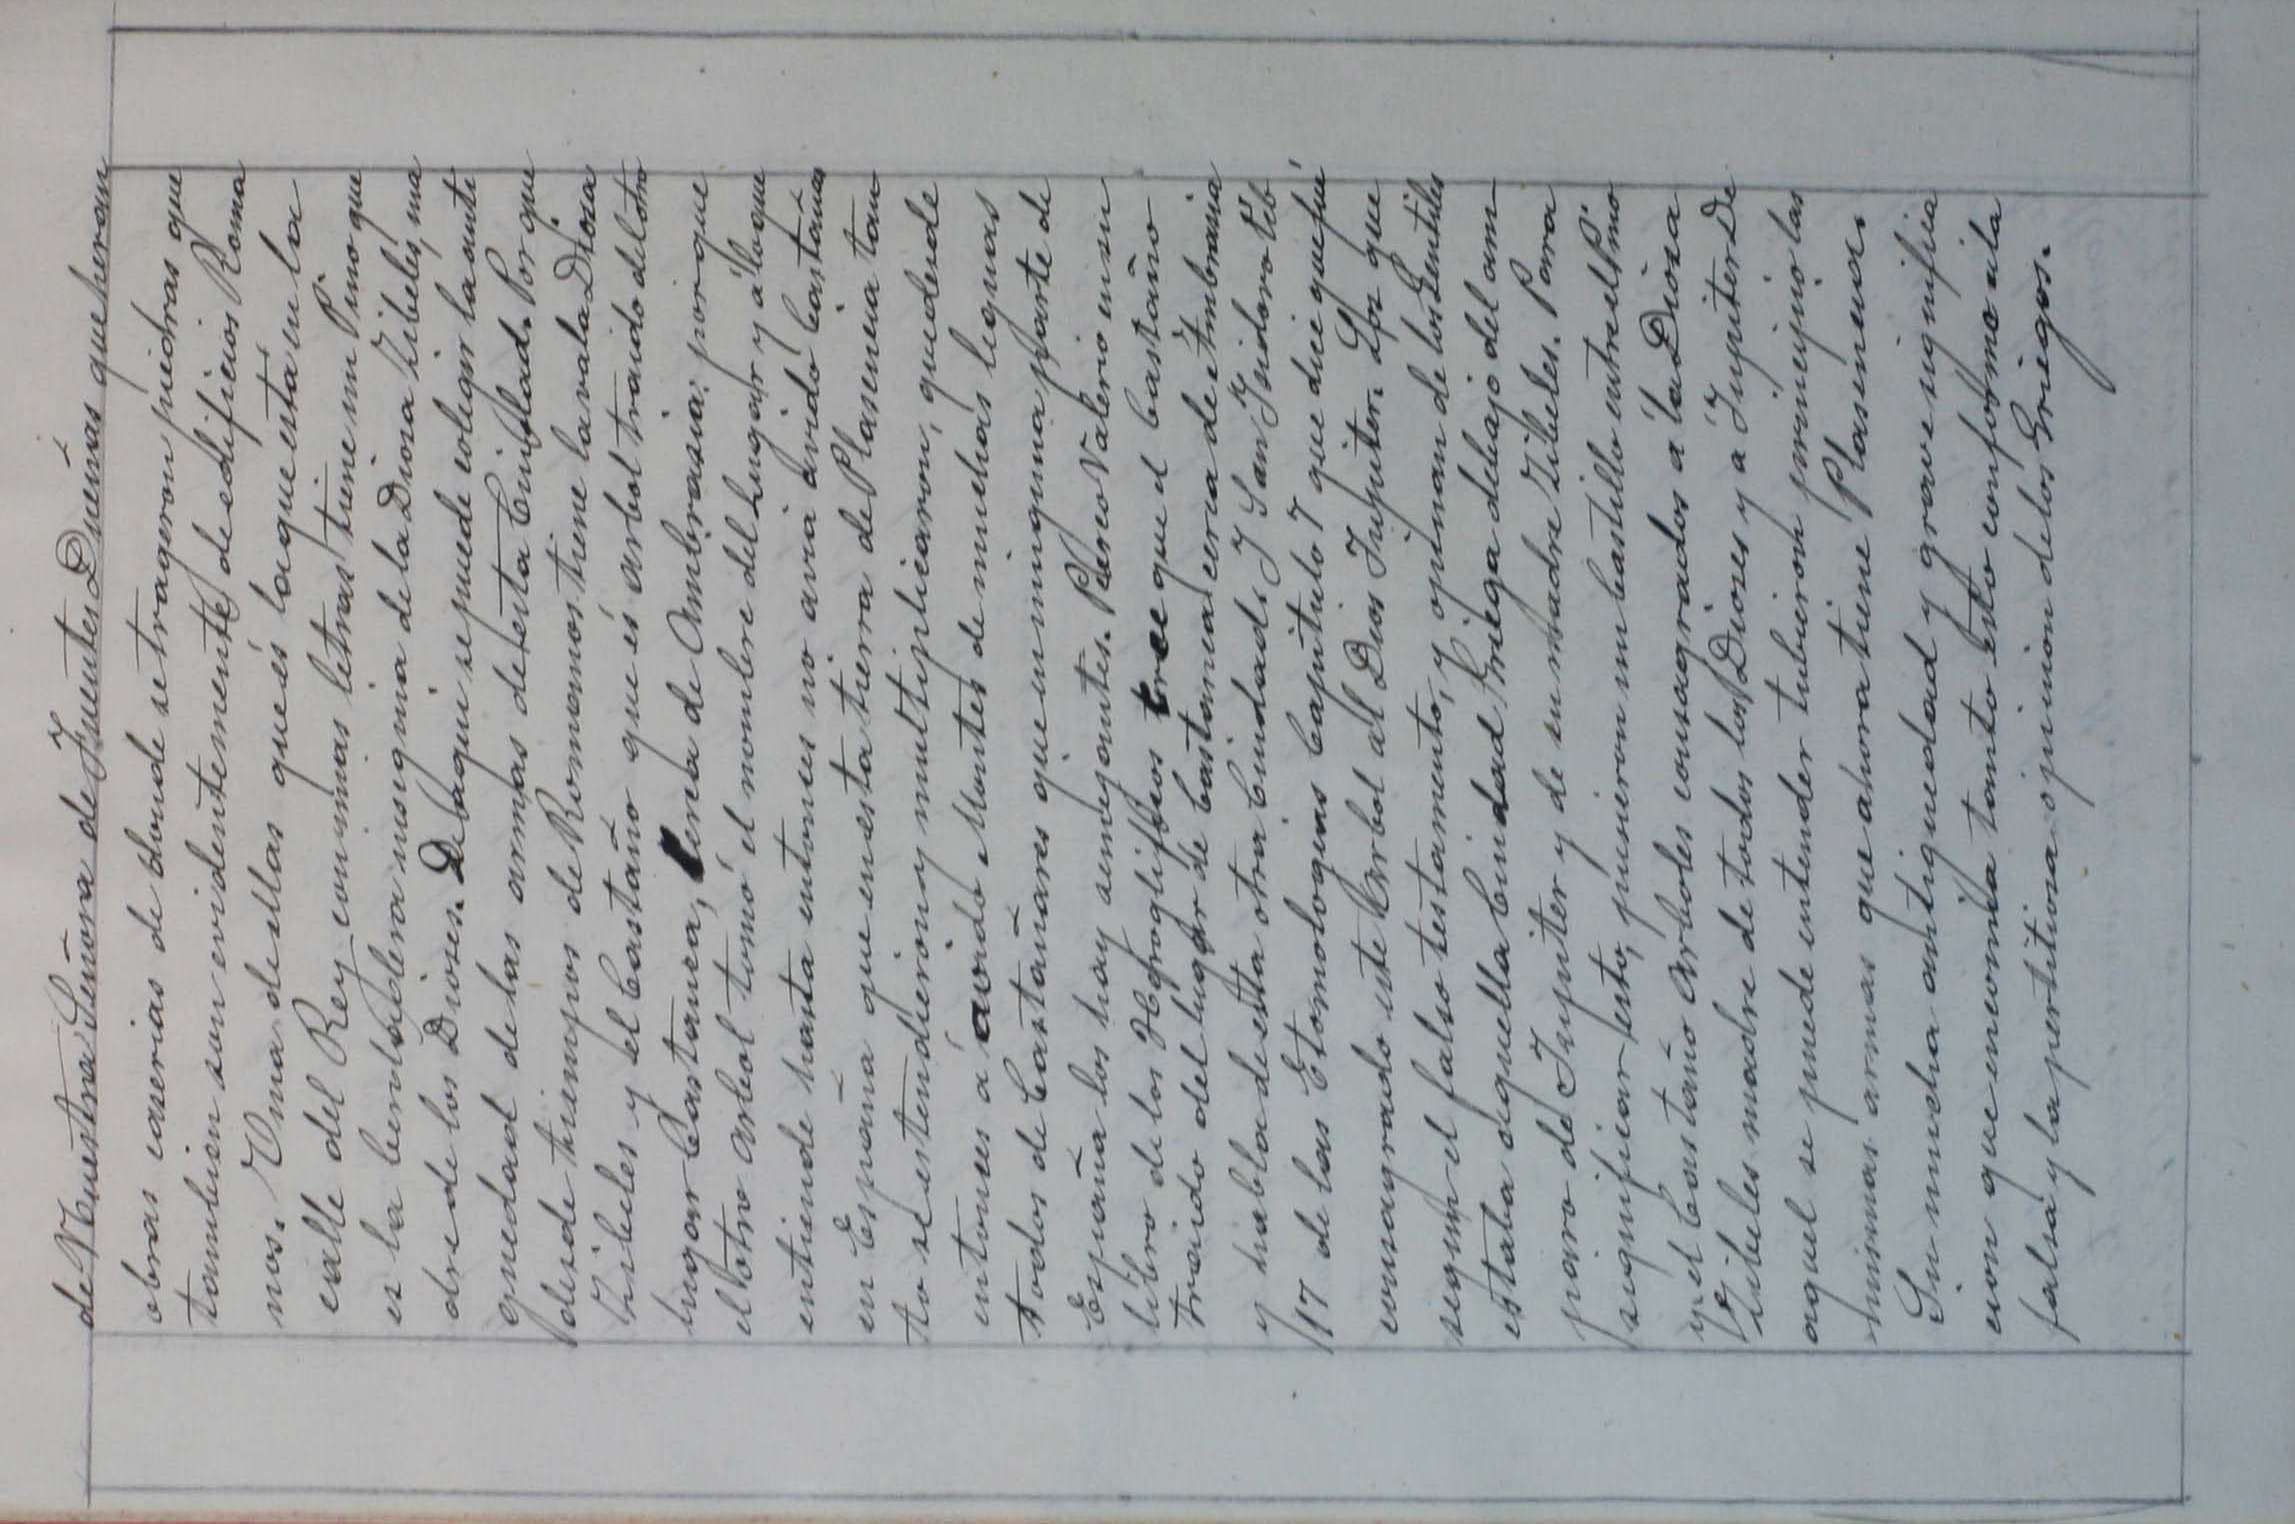 de Nuestra Señora de Fuentes Dueñas que heran
obras caserias de donde se trageron piedras que
tambien son evidentemente de edificios Roma
nos. Una de ellas que és la que esta en la
calle del Rey con unas letras tiene un Pino que
es la berdadera insignia de la Diosa Zibeles, ma
dre de los Dioses. De aqui se puede colegir la anti
guedad de las armas de esta Ciudad. Por que
desde tiempos de Romanos tiene la vala Diosa
Zibeles y el Castaño que és arbol traido del otro
lugar Castanea, cerca de Ambrasia; porque
el otro arbol tomó el nombre del Lugar y á lo que
entiende hasta entonces no avia avido Castaños
en España que en esta tierra de Plasencia tan
to se estendieron y multiplicaron, que desde
entonces á avido Montes de muchas leguas
todos de Castañares que en ninguna parte de
España los hay semejantes. Pierco Valerio en su
libro de los Hefroglifeos trae que el castaño
traido del lugar de Castanea cerca de Ambrasia
y habla de esta otra Ciudad. Y San Isidoro lib
17 de las Etomologias Capitulo 7 que dice que fué
consagrado este Arbol al Dios Jupiter. Los que
segun el falso testamento, y opinan de los Gentiles
estaba aquella Ciudad Griega debajo del am
paro de Jupiter y de su madre Zibeles. Para
significar esto, pusieron un Castillo entre el Pino
y el Castaño Arboles consagrados a la Diosa
Zibeles madre de todos los Dioses y a Jupiter De
aquel se puede entender tubieron principio las
mismas armas que ahora tiene Plasencia.
Su mucha antiguedad y grave signifia
cion que encomia tanto esto conformo á la
falsa y la pertitiosa opinion de los Griegos.